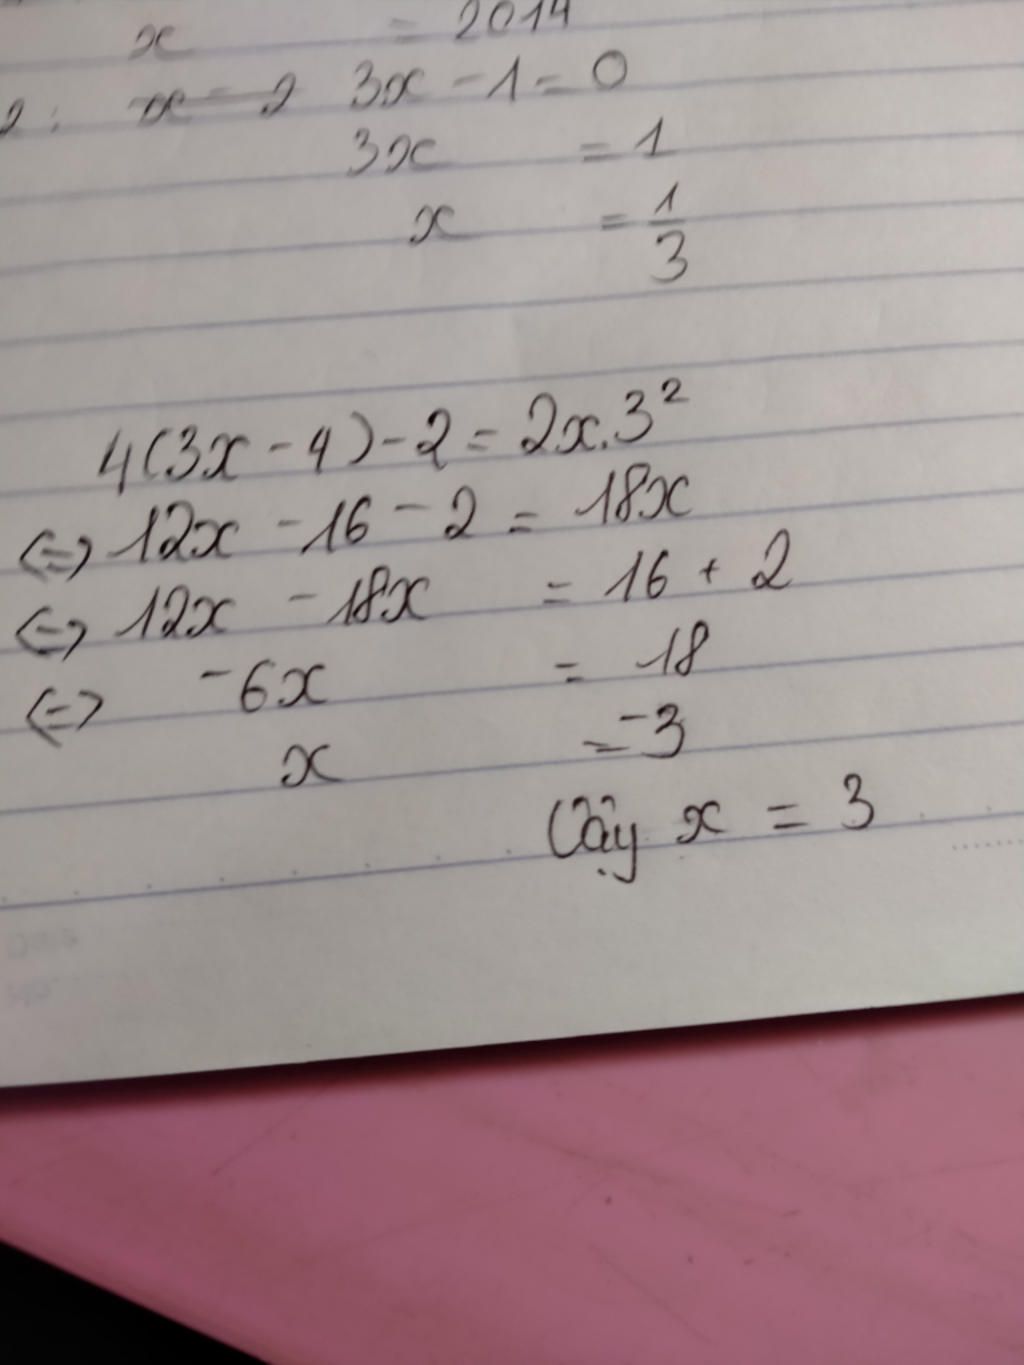 x = 2014
2: x = 2 3x - 1 = 0
3x = 1
x = 1/3
4(3x - 4) - 2 = 2x.3²
<=> 12x - 16 - 2 = 18x
<=> 12x - 18x = 16 + 2
<=> -6x = 18
x = -3
Vậy x = 3